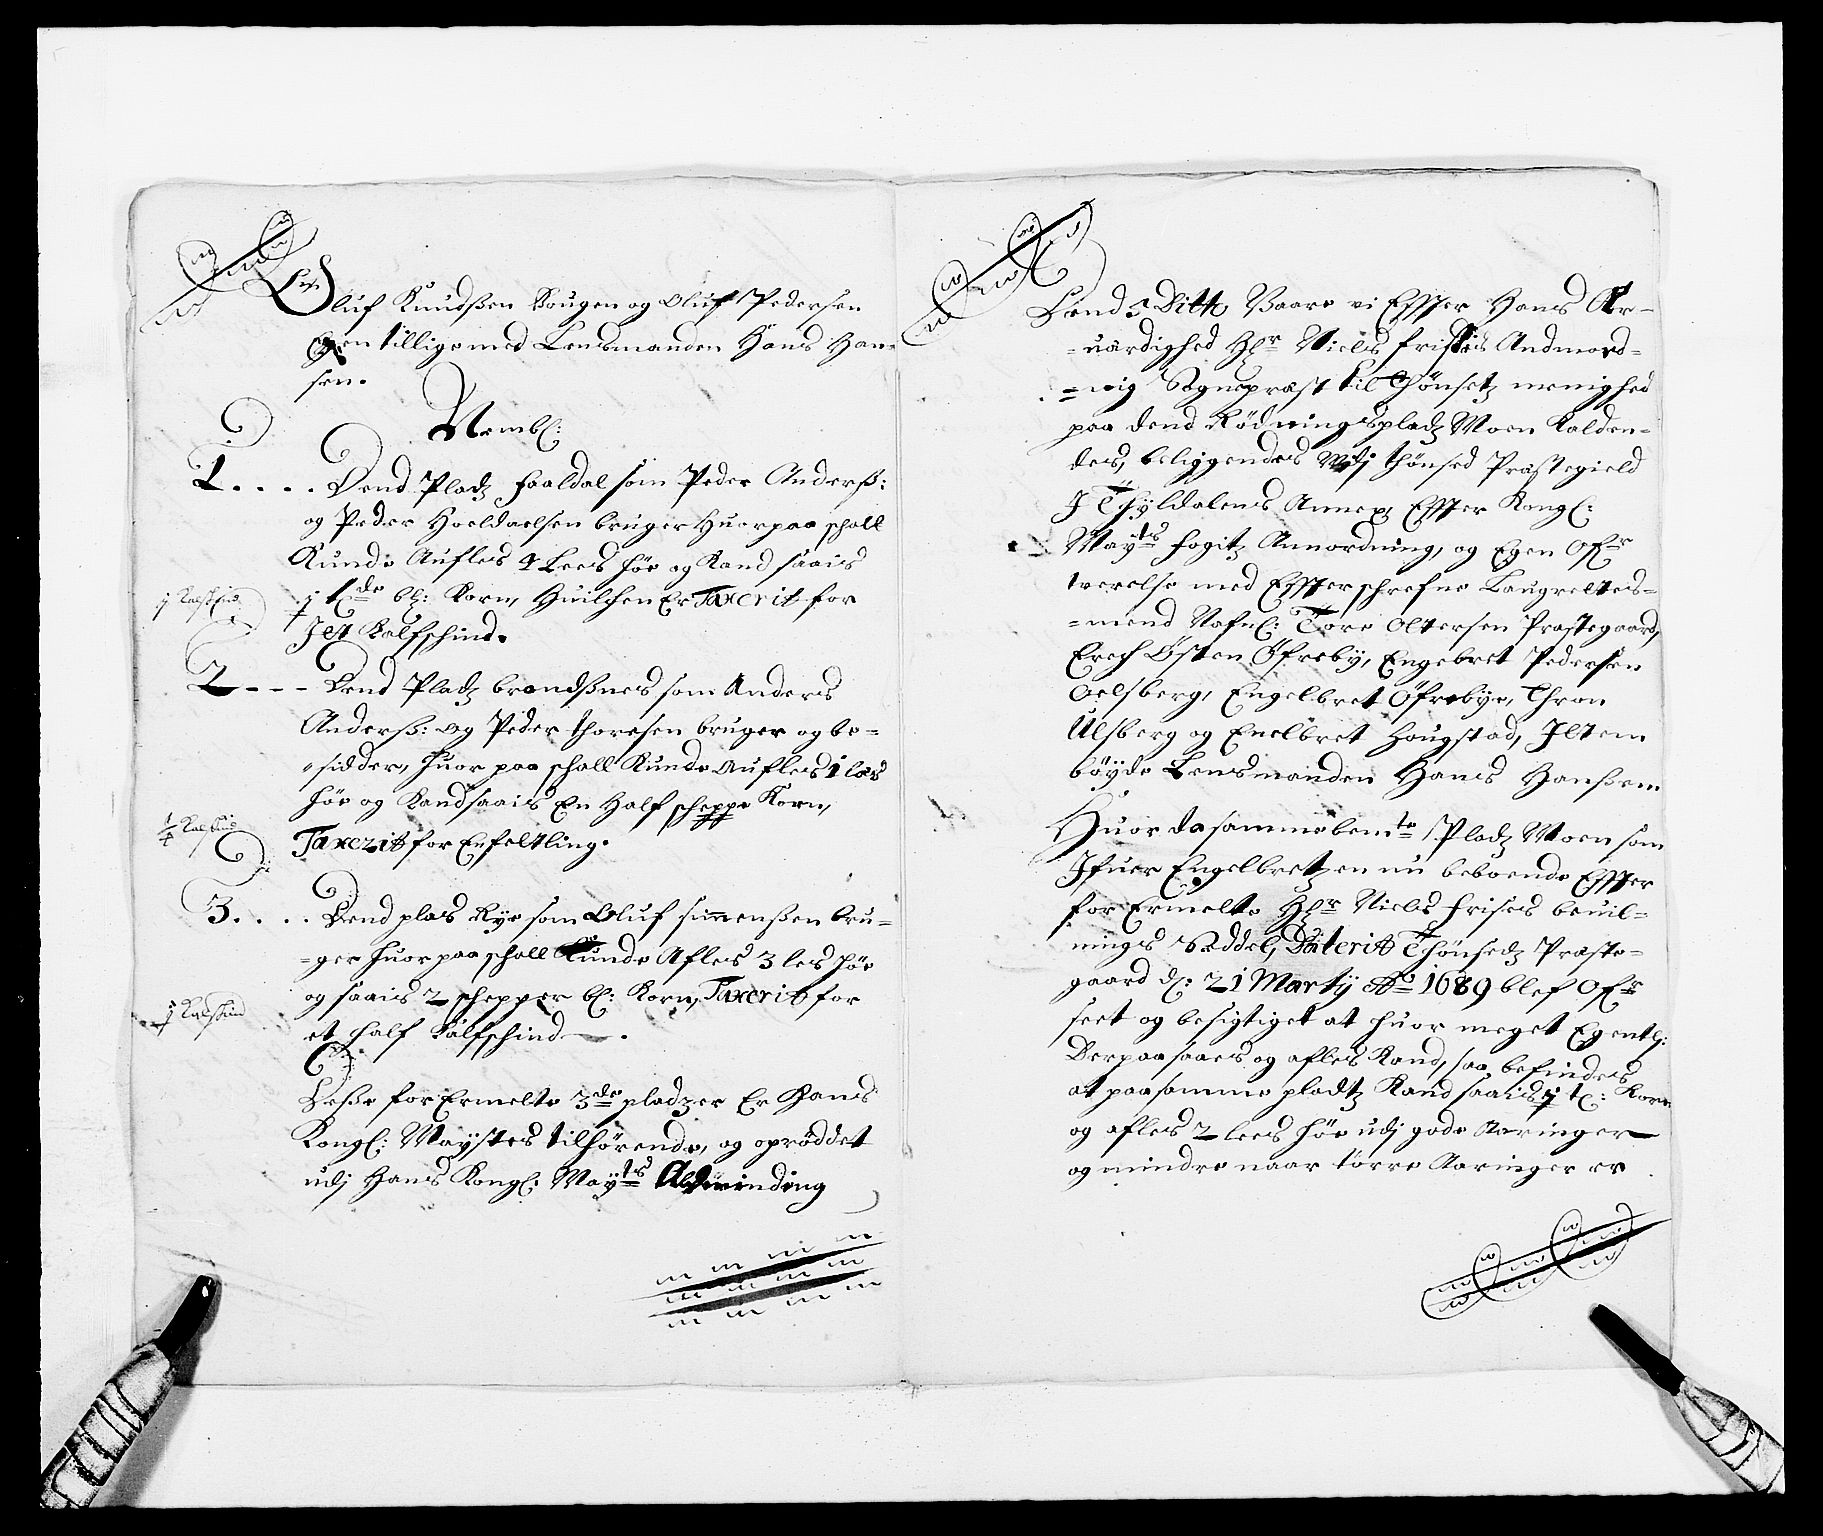 Oluf Knudssen Hougen og Oluf Pedersen
Øyen tillige med Lensmanden Hans Han-
sen.
Nembl:
1.... Dend Pladz Faaldal som Peder Anderss:
og Peder Hoeldaelsen bruger Huorpaa schall
Kunde Aufles 4 Lees høe og Kand saais
j t(de) bl: Korn, Huilchen Er Taxerit for
j Kalfskind
Jet Kalfschind.
2--- Dend Pladz brendssnes som Anders
Anderss: og Peder Thoresen bruger og be-
-sidder, huor paa schall Kunde Aufles 1 læs
høe og Kand saais En Half scheppe Korn,
1/4 Kalfskind
Taxerit for En feltling.
3.... Dend plas Rye som Oluf simenssen bru-
-ger huor paa schall Kunde Afles 3 les høe
og saais 2 schepper bl: Korn, Taxerit for
Kalfskind
et half Kalfschind —.
Desse for Ermelte 3de pladzer Er Hans
Kongl: Maystes tilhørende, og oprøddet
udj Hans Kongl: Mayts Alminding
Dend 5 Ditto Waare vi Effter Hans Ær-
-uærdighed Hr Niels frises Andmord-
-nig Sognepræst til Thønsetz menighed
paa dend Rødningspladz Moen Kalden-
des, beliggendes Udj thønsed Præstegield
J Thyldalens Annex, Effter Kongl:
Mayts fogitz Annordning, og Egen Ofr
werelse med Effterschrefne Laugrettes-
-mend Nafnl: Tore Oltersen Præstegaard,
Erech Østen Øfreby, Engebret Pedersen
Oelsberg, Engelbret Øfrebye, Thron
Ulsberg og Enelbret Hougstad, Jttem
bøyde Lensmanden Hans Hanssen
Huor da samme bemte Pladz Moen som
Jfuer Engelbretzen nu beboende Effter
for Ermelte Hr Niels Frises beuil-
nings Seddel, Daterit Thønsedz Præste-
gaard d: 21 Marty Ao 1689 blef Ofr
seet og besigtiget at huor meget Egentl:
Derpaa saaes og afles Kand, saa befindes
at paa samme pladtz Kand saais j t: Korn
og afles 2 lees høe udj gode Aaringer
og mindre naar tørre Aaringer er